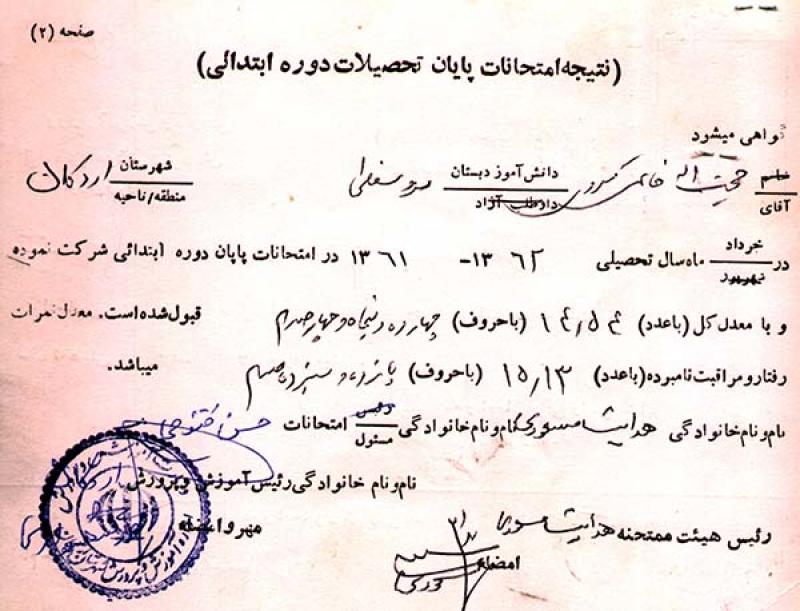 صفحه (۲)
(نتیجه امتحانات پایان تحصیلات دوره ابتدائی)
گواهی میشود
خانم آقای حجت اله دانش آموز دبستان داوطلب آزاد شهرستان منطقه/ناحیه اردکان
در خرداد شهریور ماه سال تحصیلی ۶۲ ۱۳ - ۶۱ ۱۳ در امتحانات پایان دوره ابتدائی شرکت نموده
و با معدل کل (با عدد) ۱۴٫۵۴ (با حروف) چهارده و پنجاه و چهار صدم قبول شده است. معدل نمرات
رفتار و مراقبت نامبرده (با عدد) ۱۵٫۱۳ (با حروف) پانزده و سیزده صدم میباشد.
نام و نام خانوادگی نام و نام خانوادگی رئیس مسئول امتحانات حسن
نام و نام خانوادگی رئیس آموزش و پرورش
مهر و امضاء
رئیس هیئت ممتحنه
امضاء